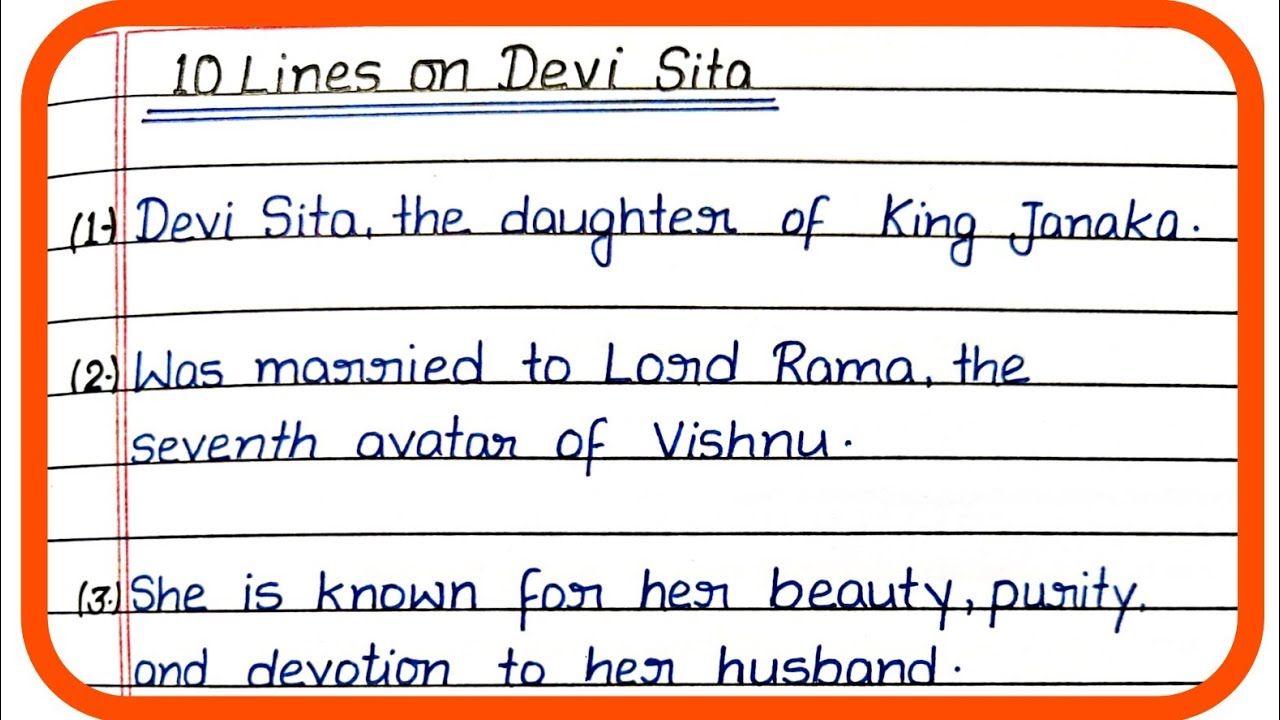 10 Lines on Devi Sita
(1.) Devi Sita, the daughter of King Janaka.
(2.) Was married to Lord Rama, the
seventh avatar of Vishnu.
(3.) She is known for her beauty, purity,
and devotion to her husband.